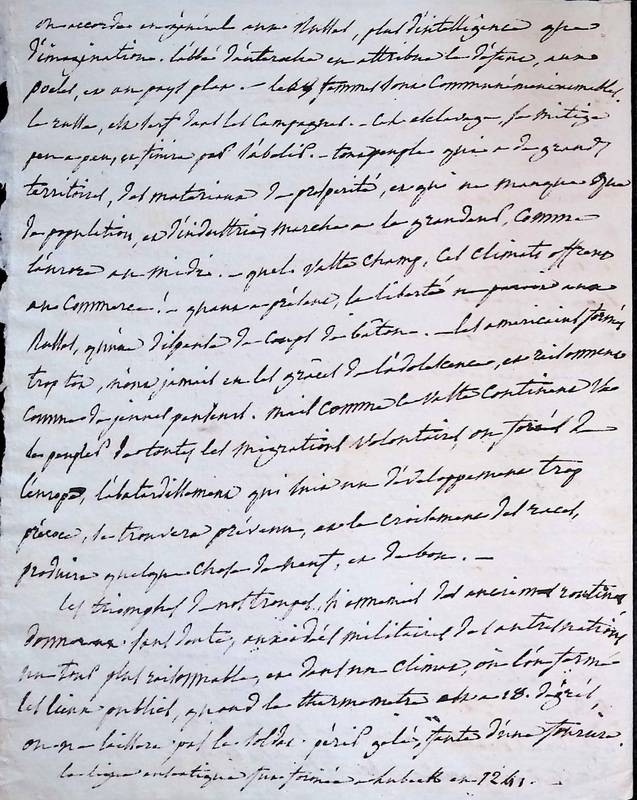 on accorde en général aux Russes, plus d'intelligence que
d'imagination. l'abbé d'auteroche en attribue la défense, aux
poëles, et au pays plan. – les femmes sont communément aimables.
le russe, est serf dans les campagnes. – cet esclavage, se mitige
peu a peu, et finira par s'abolir. – tout peuple qui a de grands
territoires, des materiaux de prosperité, et qui ne manque que
de population, et d'industries, marche a la grandeur, comme
l'europe au midi. – quel vaste champ, ces climats offrent
au commerce! – quant a présent, la liberté ne parait aux
Russes, qu'une dispense de coups de bâton. – les americains formés
trop tot, n'ont jamais eu les grâces de l'adolescence, et raisonnent
comme de jeunes penseurs. mais comme ce vaste continent va
se peupler de toutes les migrations volontaires, ou forcées de
l'europe, l'abatardissement qui suit un développement trop
précoce, se trouvera prévenu, et le croisement des races,
produira quelque chose de neuf, et de bon. –
les triomphes de nos troupes, si ennemies des anciennes routines
donneront sans doute, aux idées militaires des autres nations
un tour plus raisonnable, et dans un climat, où l'on ferme
les lieux publics, quand le thermometre est a 18. degrés,
on ne laissera pas le soldat périr gelé, faute d'une fourure.
la ligue anséatique fut formée a lubeck en 1241. –